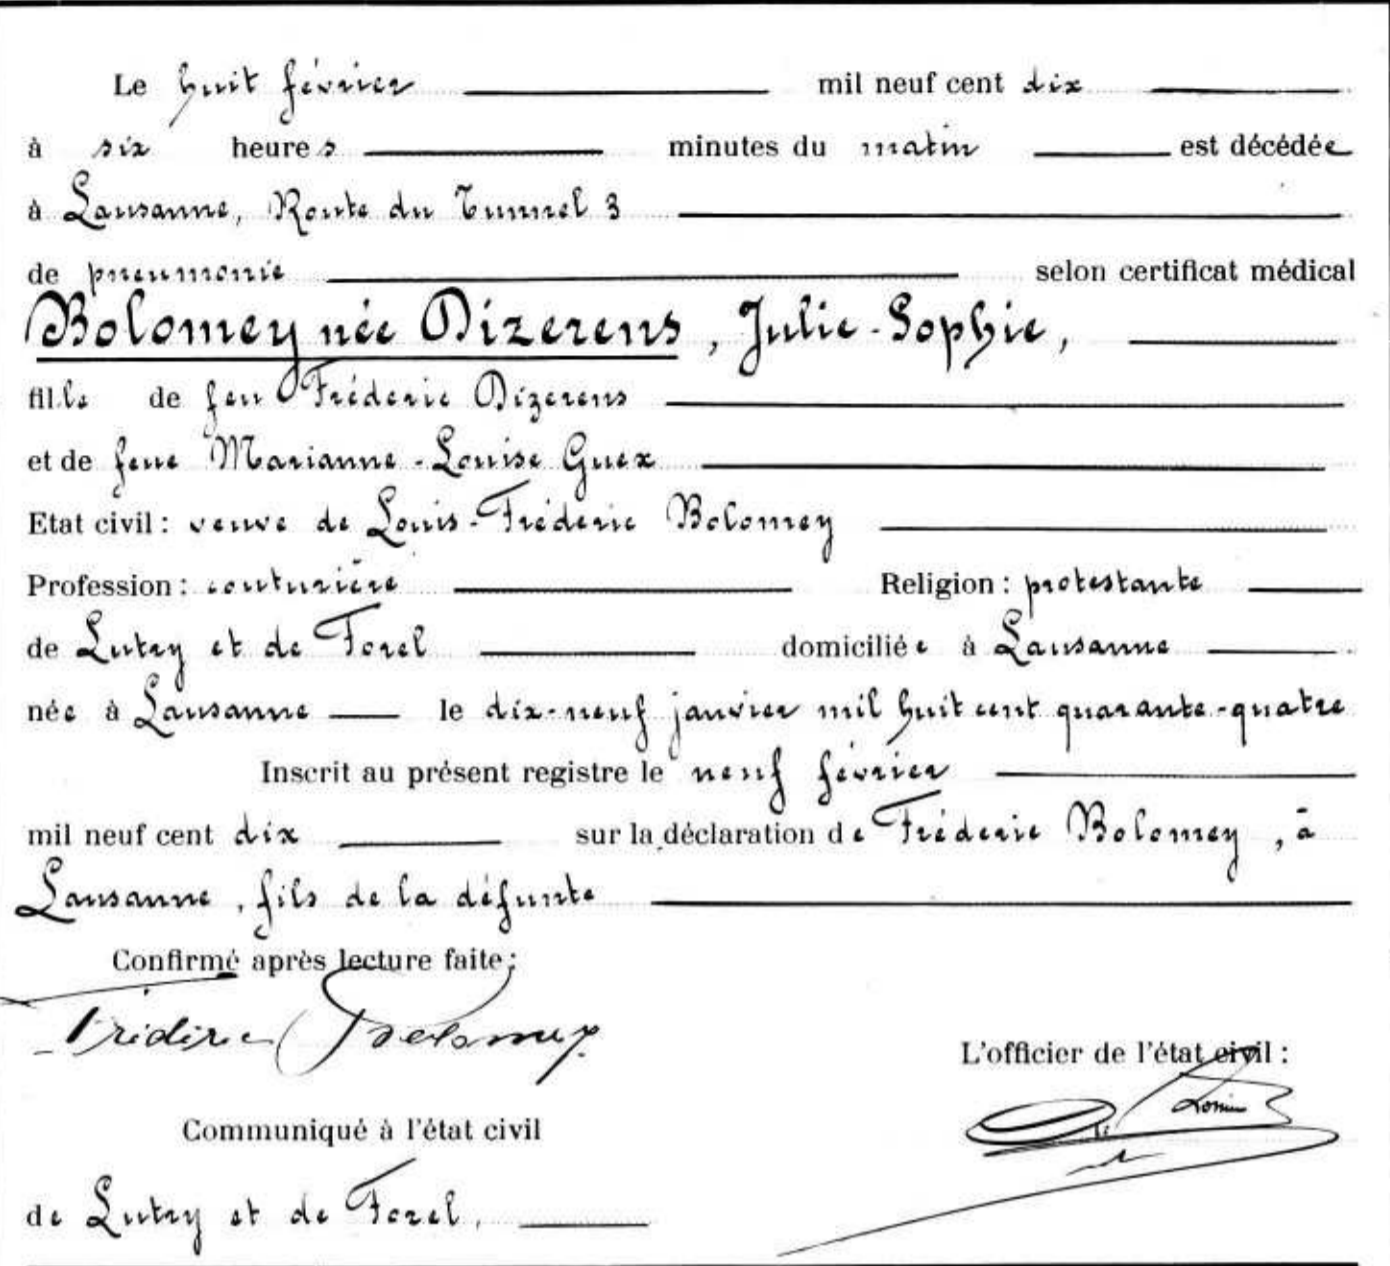 Le huit février mil neuf cent dix
à six heures minutes du matin est décédée
à Lausanne, Route du Tunnel 3
de pneumonie selon certificat médical
Bolomey née Dizerens, Julie-Sophie,
fille de feu Fréderic Dizerens
et de feue Marianne-Louise Guex
Etat civil : veuve de Louis-Fréderic Bolomey
Profession : couturière Religion : protestante
de Lutry et de Forel domiciliée à Lausanne
née à Lausanne le dix-neuf janvier mil huit cent quarante-quatre
Inscrit au présent registre le neuf février
mil neuf cent dix sur la déclaration de Fréderic Bolomey, à
Lausanne, fils de la défunte
Confirmé après lecture faite :
Fréderic Bolomey
L'officier de l'état civil :
Communiqué à l'état civil
de Lutry et de Forel,